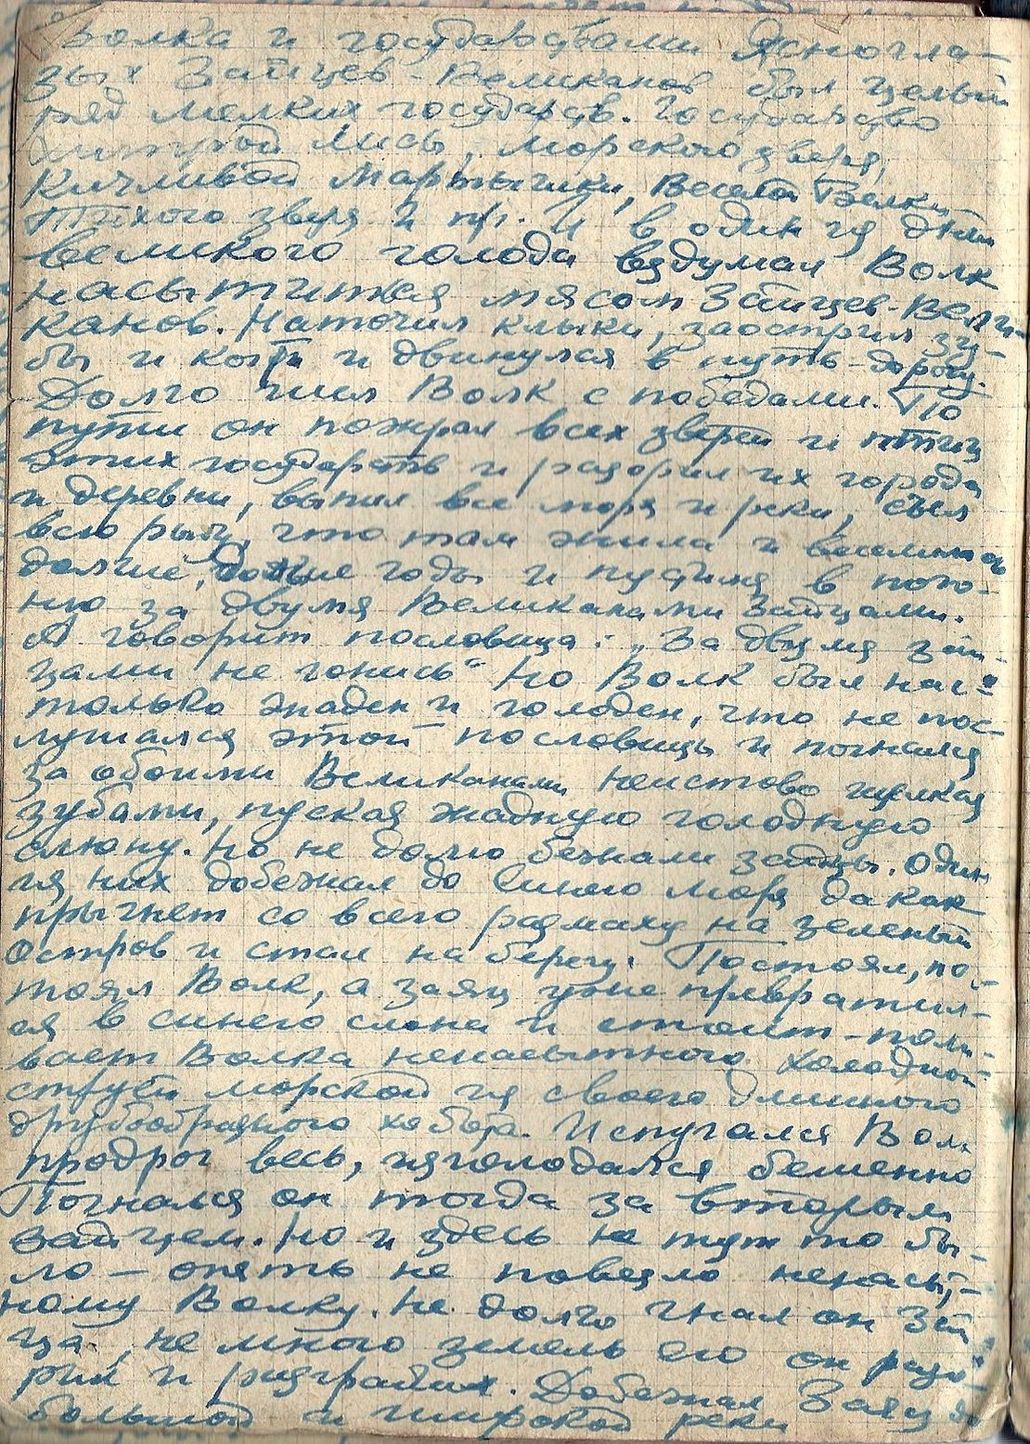 Волка и государствами Ясногла-
зых Зайцев-Великанов был целый
ряд мелких государств. Государство
Хитрой Лисы, Морского зверя,
Кичливой Мартышки, Веселой Белки,
Тихого зверя и пр. И в один из дней
великого голода вздумал Волк
насытиться мясом Зайцев-Вели-
канов. Наточил клыки, заострил зу-
бы и когти и двинулся в путь-дорогу.
Долго шел Волк с победами. По
пути он пожрал всех зверей и птиц
этих государств и разорил их города
и деревни, выпил все моря и реки, съел
всю рыбу, что там жила и веселилась
долгие, долгие годы и пустился в пого-
ню за двумя Великанами Зайцами.
А говорит пословица: „За двумя зай-
цами не гонись“ Но Волк был нас-
только жаден и голоден, что не пос-
лушался этой пословицы и погнался
за обоими Великанами неистово щелкая
зубами, пуская жадную голодную
слюну. Но не долго бежали зайцы. Один
из них добежал до Синего моря да как
прыгнет со всего размаху на зеленый
остров и стал на берегу. Постоял, по-
тоял Волк, а заяц уже превратил-
ся в синего слона и стоит-поли-
вает Волка ненасытного холодной
струей морской из своего длинного
трубообразного хобота. Испугался Волк
продрог весь, изголодался бешенно
Погнался он тогда за вторым
зайцем. Но и здесь не тут то бы-
ло — опять не повезло ненасыт-
ному Волку. Не долго гнал он Зай
ца, не много земель его он разо-
рил и разграбил. Добежал Заяц до
большой и широкой реки